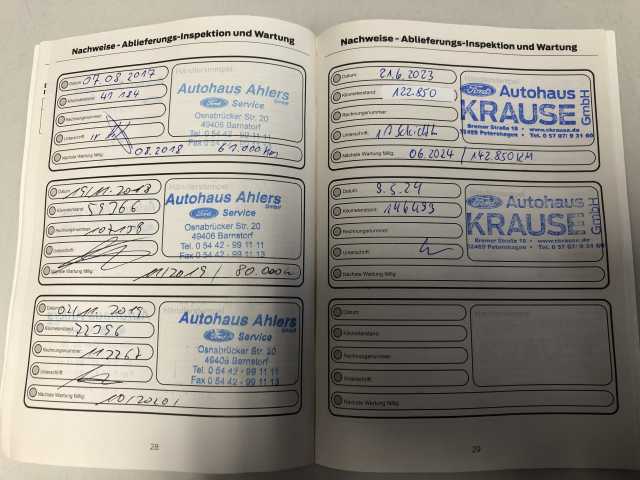 Nachweise - Ablieferungs-Inspektion und Wartung
Datum 07.08.2017
Kilometerstand 41 184
Rechnungsnummer
Unterschrift
Nächste Wartung fällig: 08.2018 61.000 km
Autohaus Ahlers GmbH
Ford Service
Osnabrücker Str. 20
49406 Barnstorf
Tel. 0 54 42 - 99 11 11
Datum 19/11.2018
Kilometerstand 59766
Rechnungsnummer 107159
Unterschrift
Nächste Wartung fällig: 11/2019 / 80.000
Autohaus Ahlers GmbH
Ford Service
Osnabrücker Str. 20
49406 Barnstorf
Tel. 0 54 42 - 99 11 11
Fax 0 54 42 - 99 11 13
Datum 04/11.2019
Kilometerstand 72396
Rechnungsnummer 112267
Unterschrift
Nächste Wartung fällig: 10/2020/
Autohaus Ahlers GmbH
Ford Service
Osnabrücker Str. 20
49406 Barnstorf
Tel. 0 54 42 - 99 11 11
Fax 0 54 42 - 99 11 13
28
Nachweise - Ablieferungs-Inspektion und Wartung
Datum 21.6.2023
Kilometerstand 122.850
Rechnungsnummer
Unterschrift
Nächste Wartung fällig: 06.2024 / 142.850 KM
Ford Autohaus
KRAUSE GmbH
Bremer Straße 18 • www.vkrause.de
32469 Petershagen Tel. 0 57 07 / 9 31 60
Datum 8.5.24
Kilometerstand 146433
Rechnungsnummer
Unterschrift
Nächste Wartung fällig:
Ford Autohaus
KRAUSE GmbH
Bremer Straße 18 • www.vkrause.de
32469 Petershagen Tel. 0 57 07 / 9 31 60
Datum
Kilometerstand
Rechnungsnummer
Unterschrift
Nächste Wartung fällig:
29